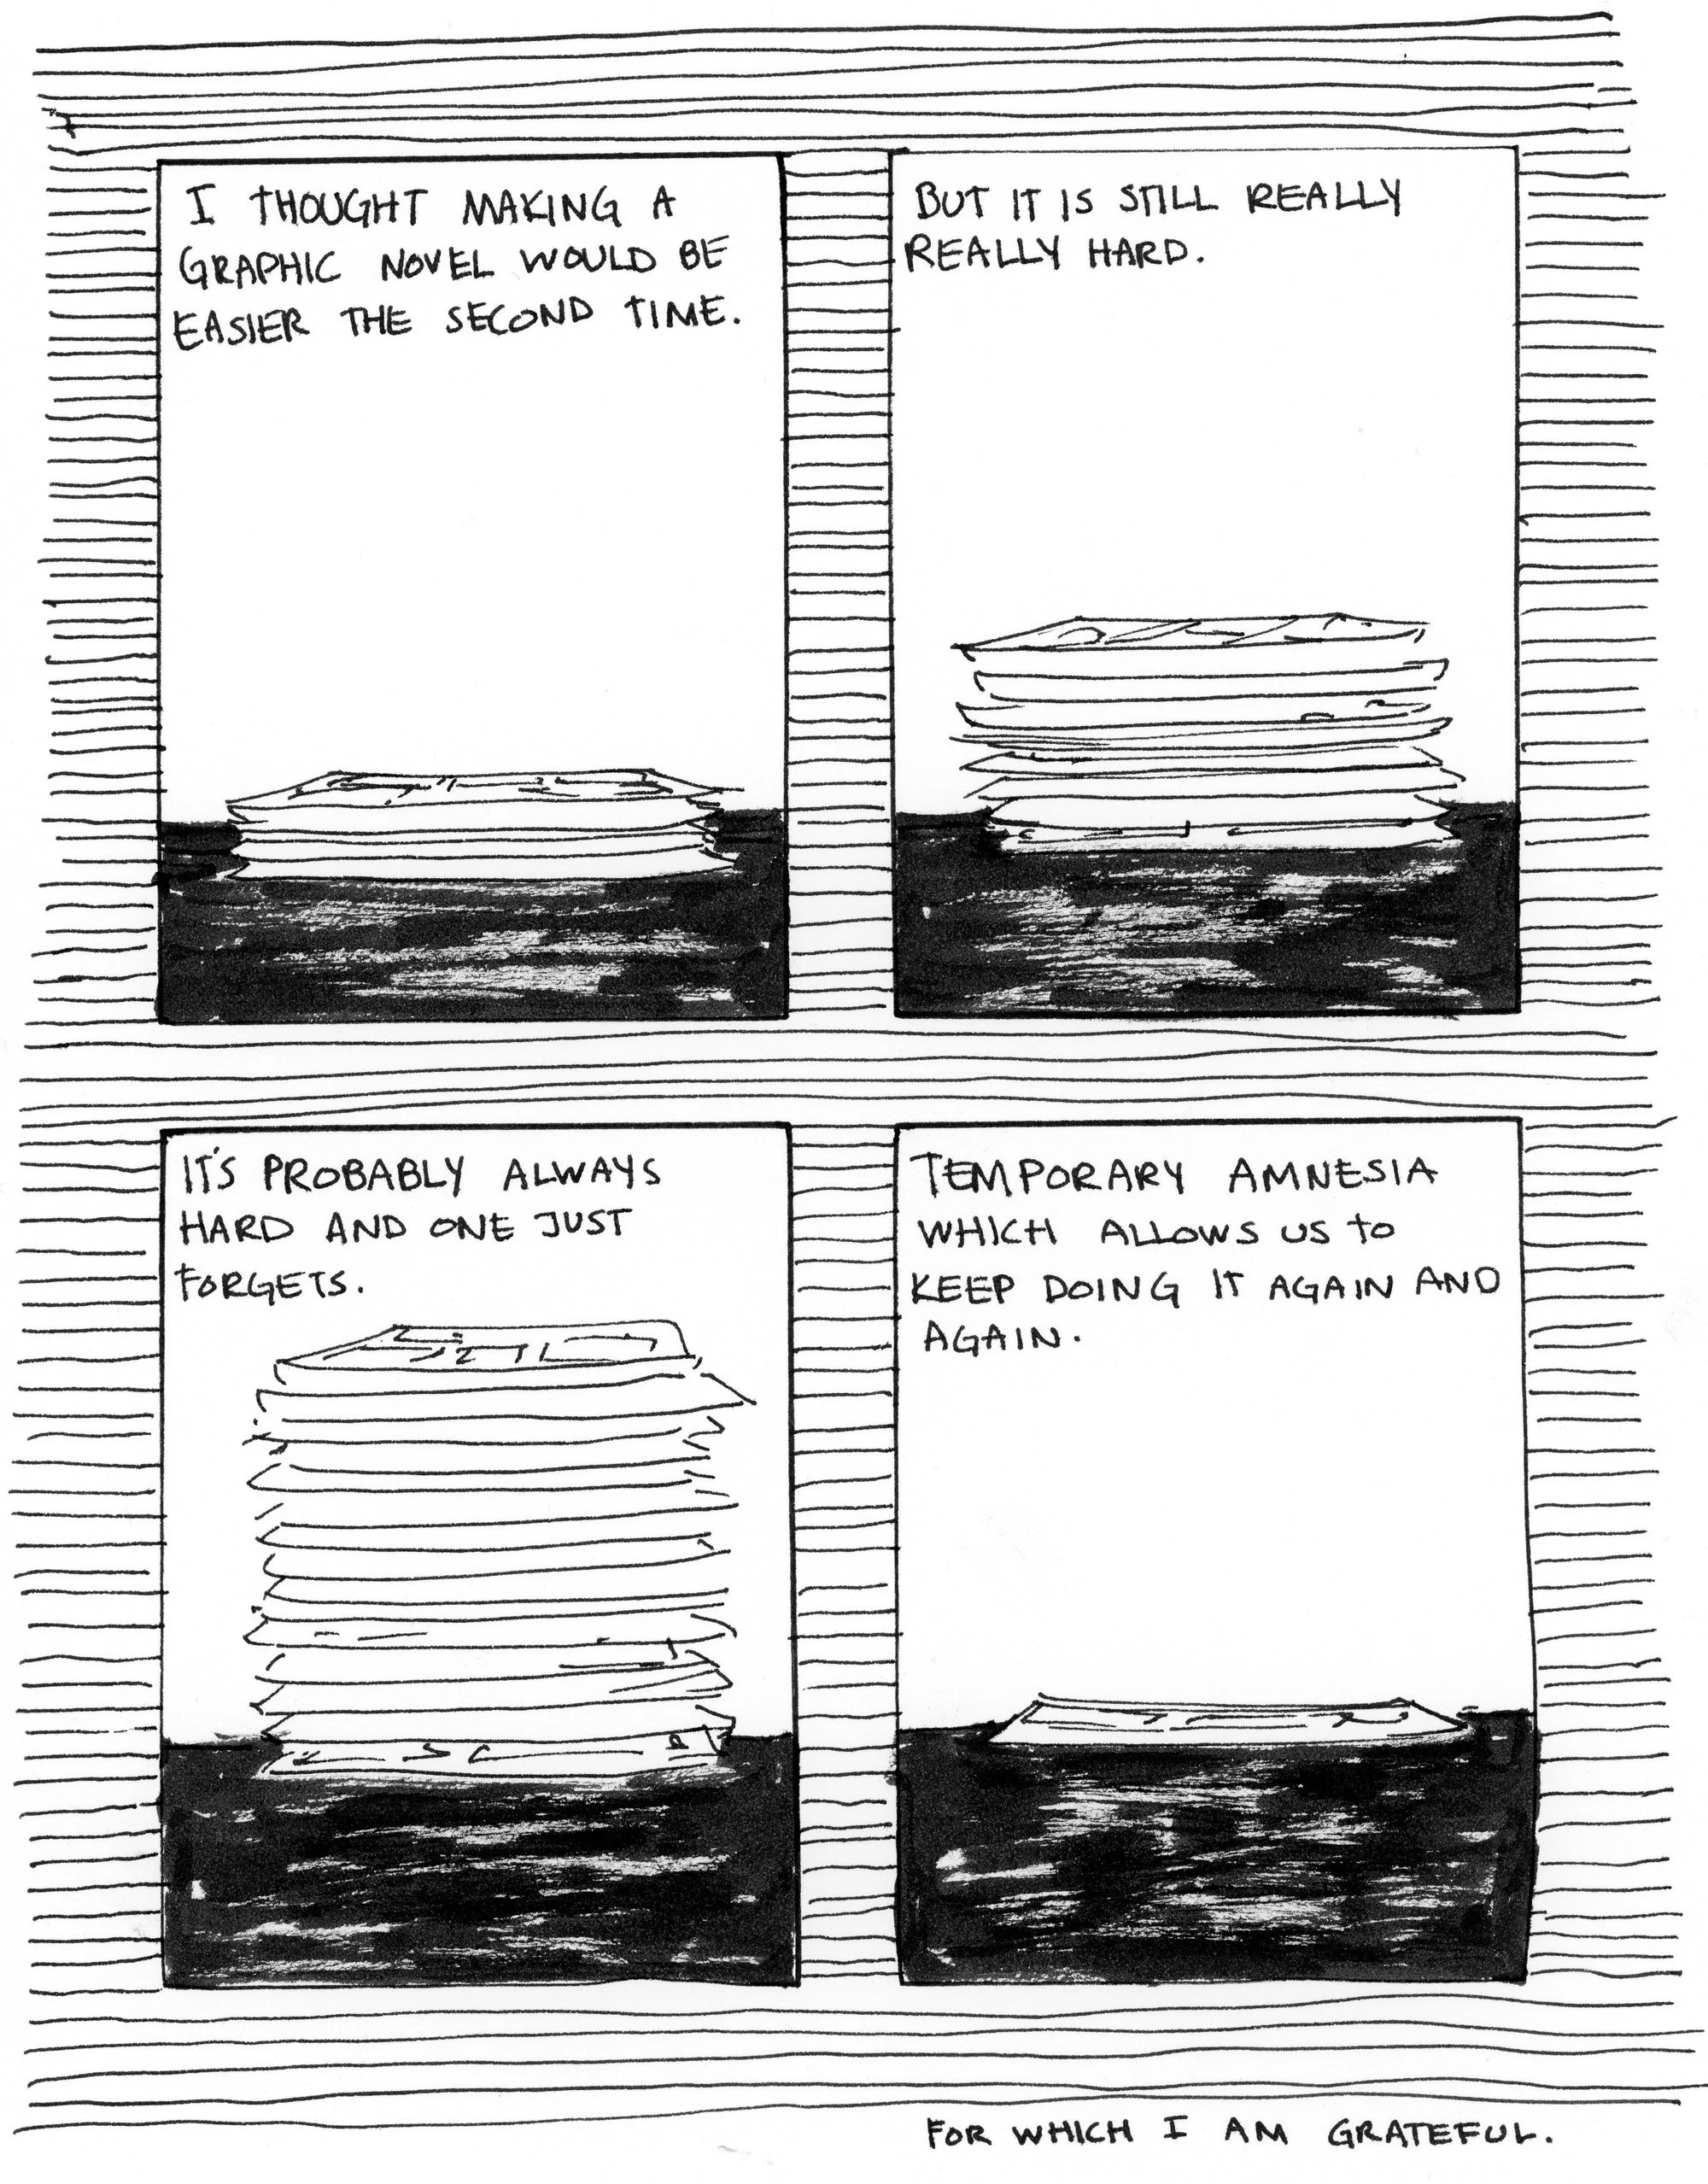 I THOUGHT MAKING A
GRAPHIC NOVEL WOULD BE
EASIER THE SECOND TIME.
BUT IT IS STILL REALLY
REALLY HARD.
IT'S PROBABLY ALWAYS
HARD AND ONE JUST
FORGETS.
TEMPORARY AMNESIA
WHICH ALLOWS US TO
KEEP DOING IT AGAIN AND
AGAIN.
FOR WHICH I AM GRATEFUL.